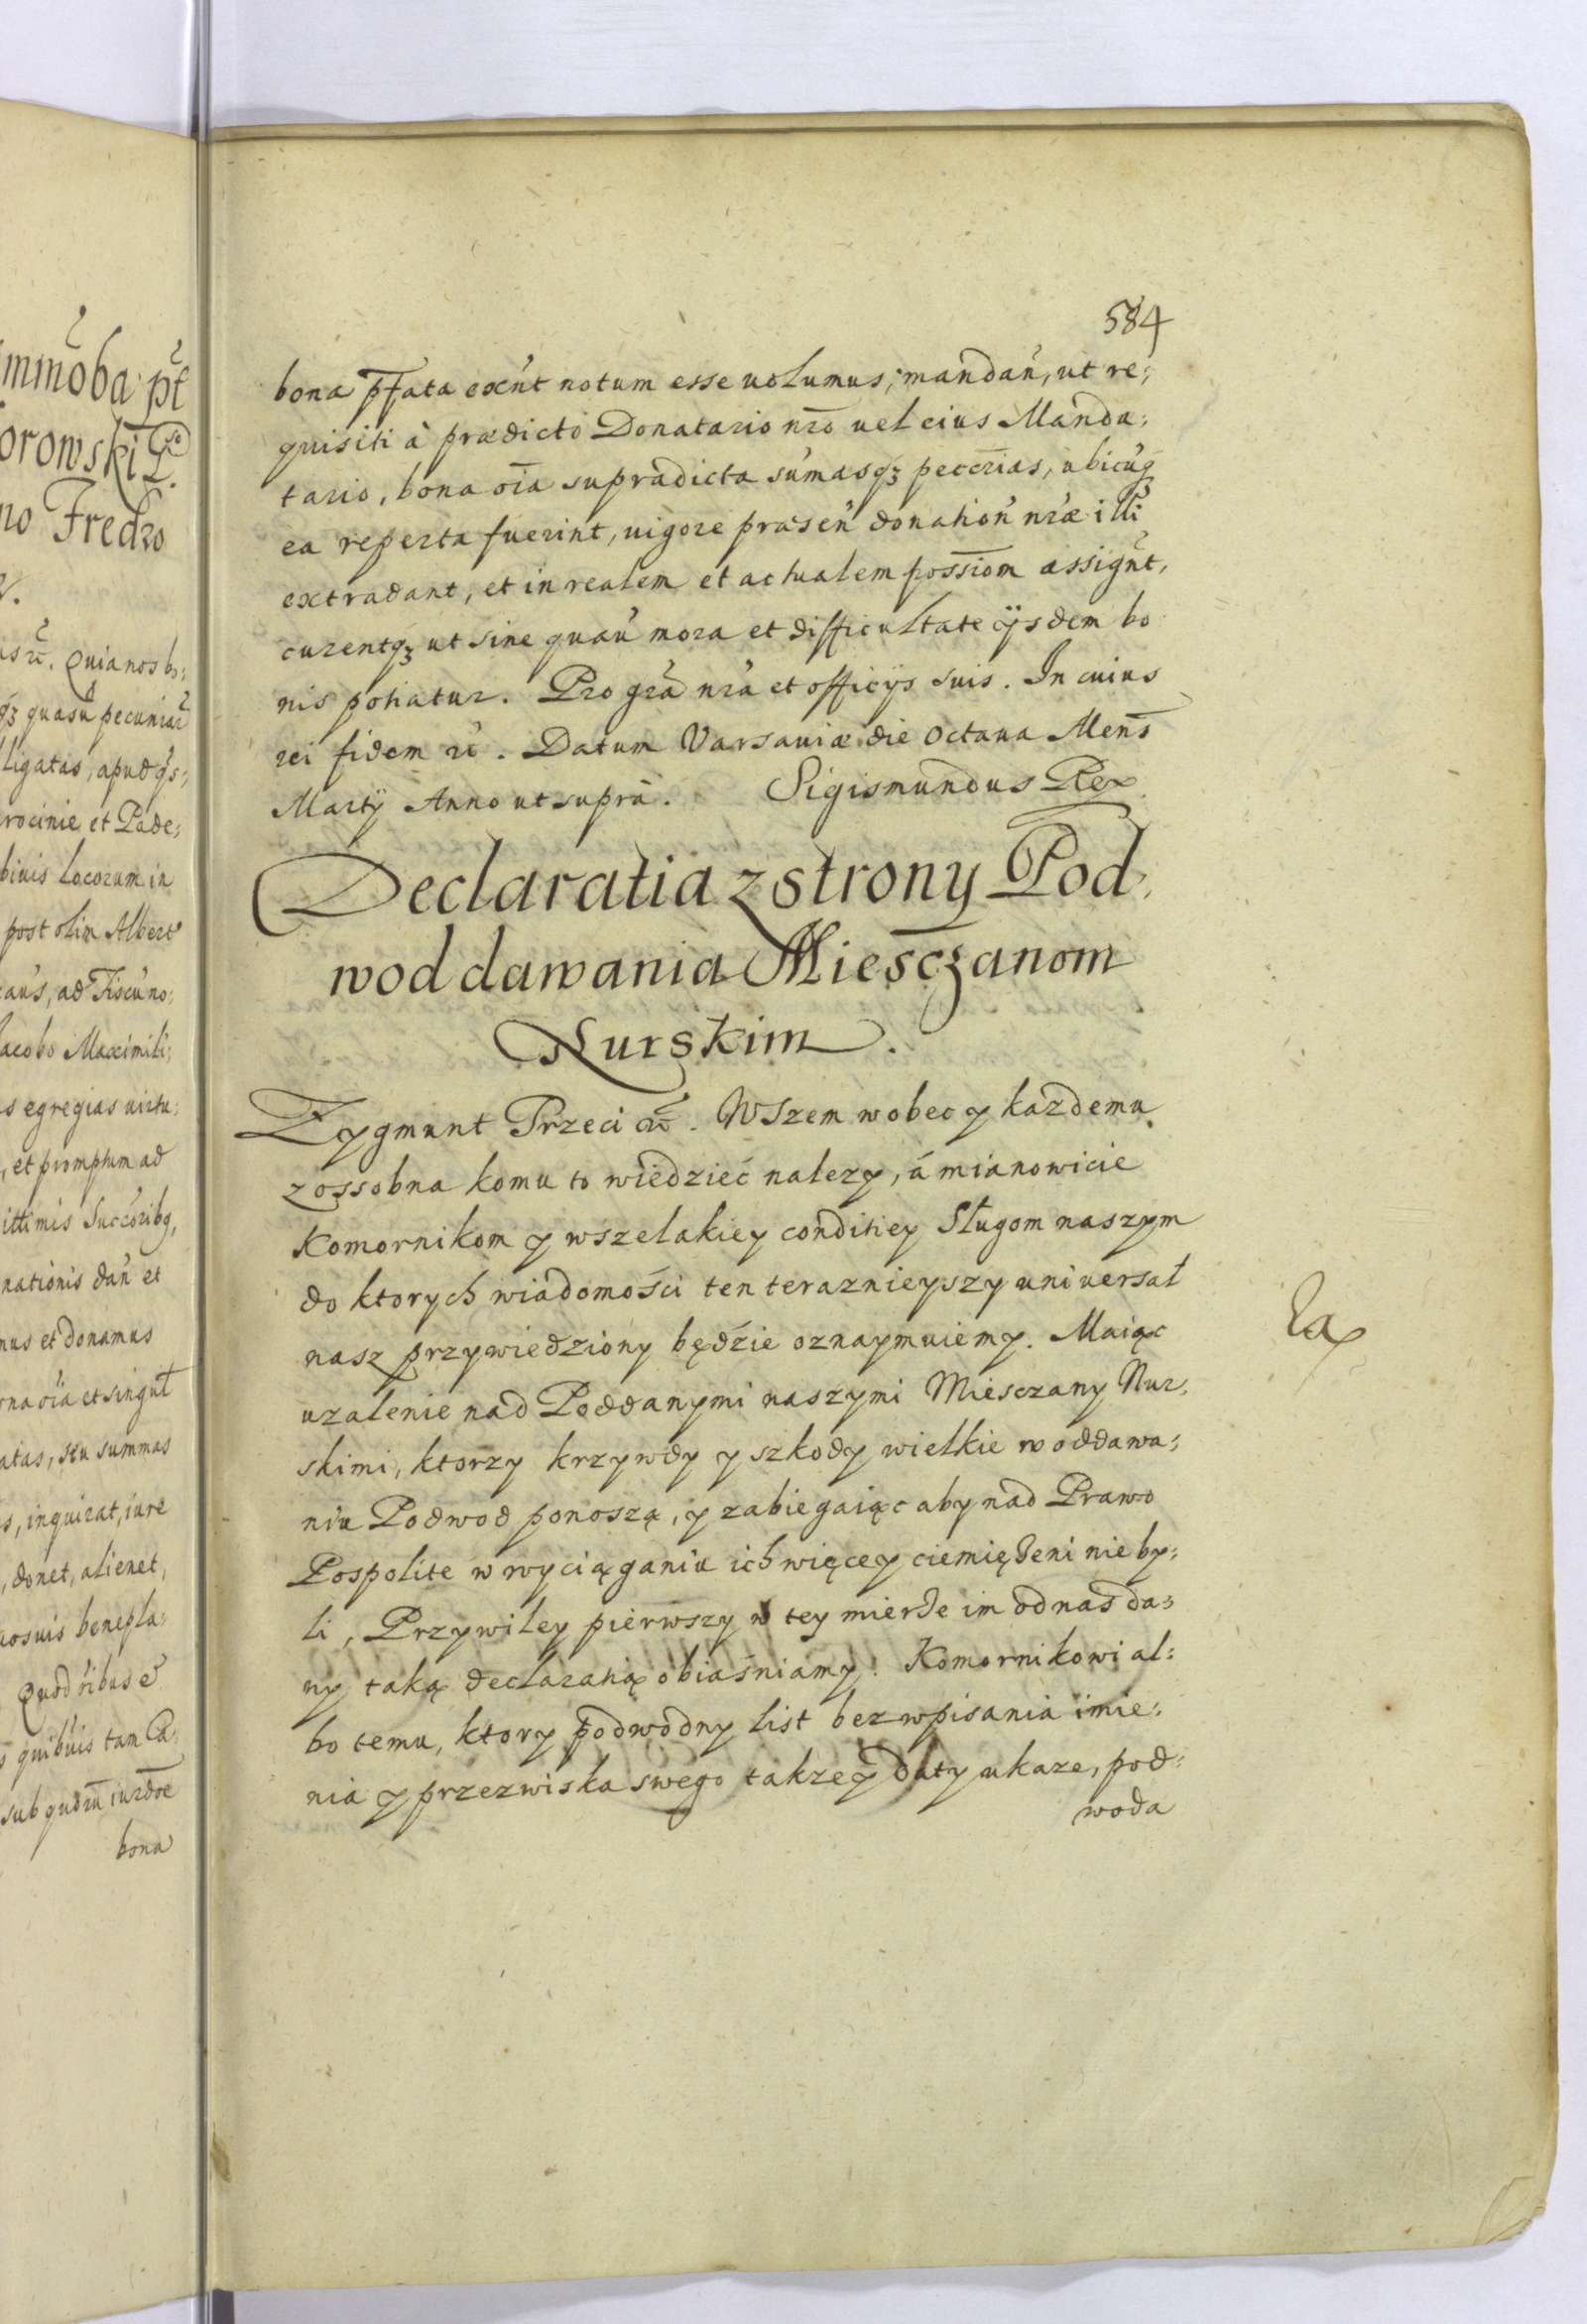 immoba pt
orowski
no Fredro
Quia nos bo:
qz quasu pecuniar
ligatas, apud qs:
rocinie et Pade:
biuis Locorum in
post olim Albert
caus, ad Fiscu no:
Jacobo Maximili:
s egregias uirtu:
, et promptum ad
ittimis Succoribq,
nationis dan et
mus et donamus
ona oia et singul
atas, seu summas
s, inquirat, iure
, donet, alienet,
suis benepla:
Quod ribus e
quibuis tam Ca:
sub quoru iurdoe
bona
584
bona pfata exnt notum esse uolumus; mandan, ut re:
quisiti à prædicto Donatario nro uel eius Manda:
tario, bona oia supradicta sumasqz peccrias, ubicuq
ea reperta fuerint, uigore præsen donation nræ illi
extradant, et in realem et actualem possiom assignt,
curentqz ut sine quau mora et difficultate ijsdem bo
nis potiatur. Pro gra nra et officijs suis. In cuius
rei fidem rc. Datum Varsauiæ die Octaua Mens
Martij Anno ut supra. Sigismundus Rex.
Declaratia z strony Pod,
wod dawania Miesczanom
Nurskim.
Zygmunt Trzeci rc. Wszem wobec y kazdemu
zossobna komu to wiedzieć nalezy, á mianowicie
Komornikom y wszelakiey conditiey Sługom naszym
do ktorych wiadomości ten teraznieyszy uniuersał
nasz przywiedziony będzie oznaymuiemy. Maiąc
uzalenie nad Poddanymi naszymi Miesczany Nur,
skimi, ktorzy krzywdy y szkody wielkie w oddawa:
niu Podwod ponoszą, y zabiegaiąc aby nad Prawo
Pospolite w wyciąganiu ich więcey ciemiężeni nie by:
li, Przywiley pierwszy w tey mierze im od nas da:
ny taką declaratią obiaśniamy. Komornikowi al:
bo temu, ktory podwodny list bez wpisania imie:
nia y przezwiska swego takze y daty ukaze, pod:
woda